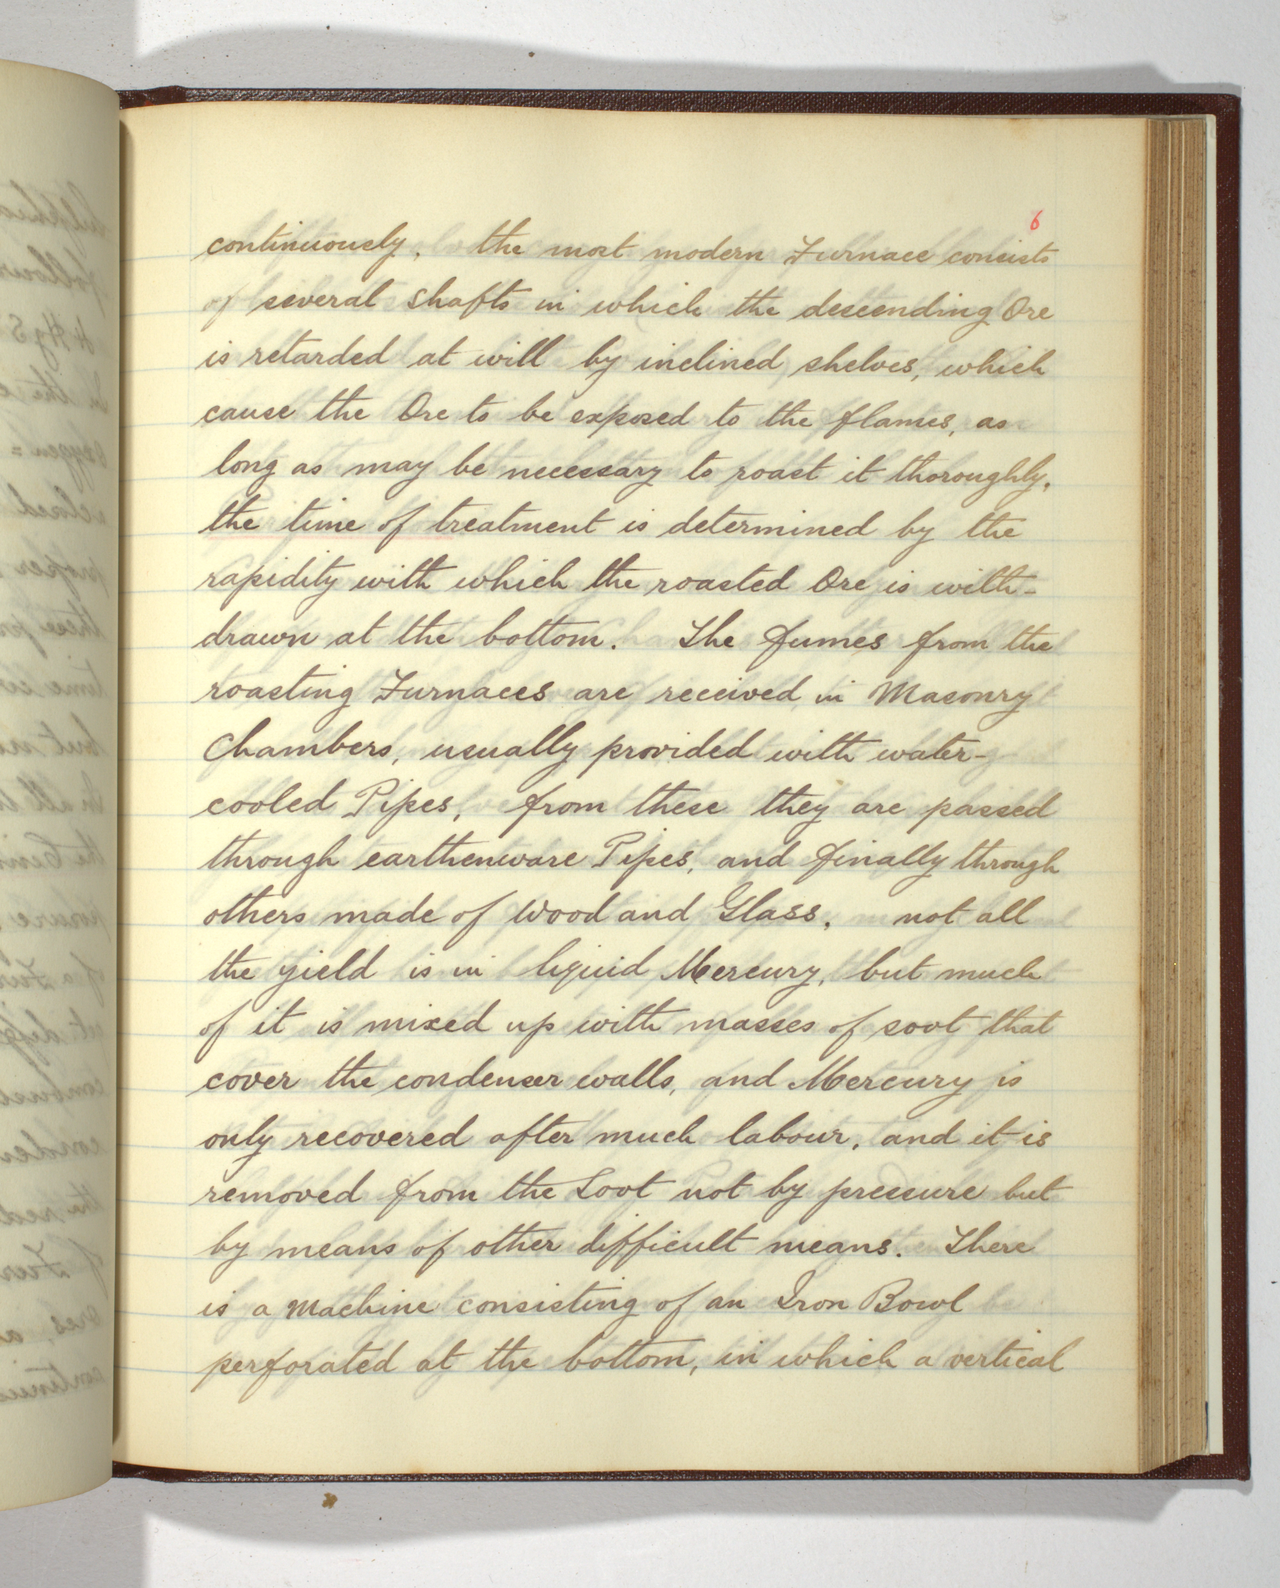 6
continuously. the most modern Furnace consists
of several shafts in which the descending Ore
is retarded at will by inclined shelves, which
cause the Ore to be exposed to the flames, as
long as may be necessary to roast it thoroughly,
the time of treatment is determined by the
rapidity with which the roasted Ore is with-
drawn at the bottom. The fumes from the
roasting Furnaces are received in Masonry
Chambers, usually provided with water-
cooled Pipes, from these they are passed
through earthenware Pipes, and finally through
others made of Wood and Glass, not all
the yield is in liquid Mercury, but much
of it is mixed up with masses of soot that
cover the condenser walls, and Mercury is
only recovered after much labour, and it is
removed from the Soot not by pressure but
by means of other difficult means. There
is a Machine consisting of an Iron Bowl
perforated at the bottom, in which a vertical